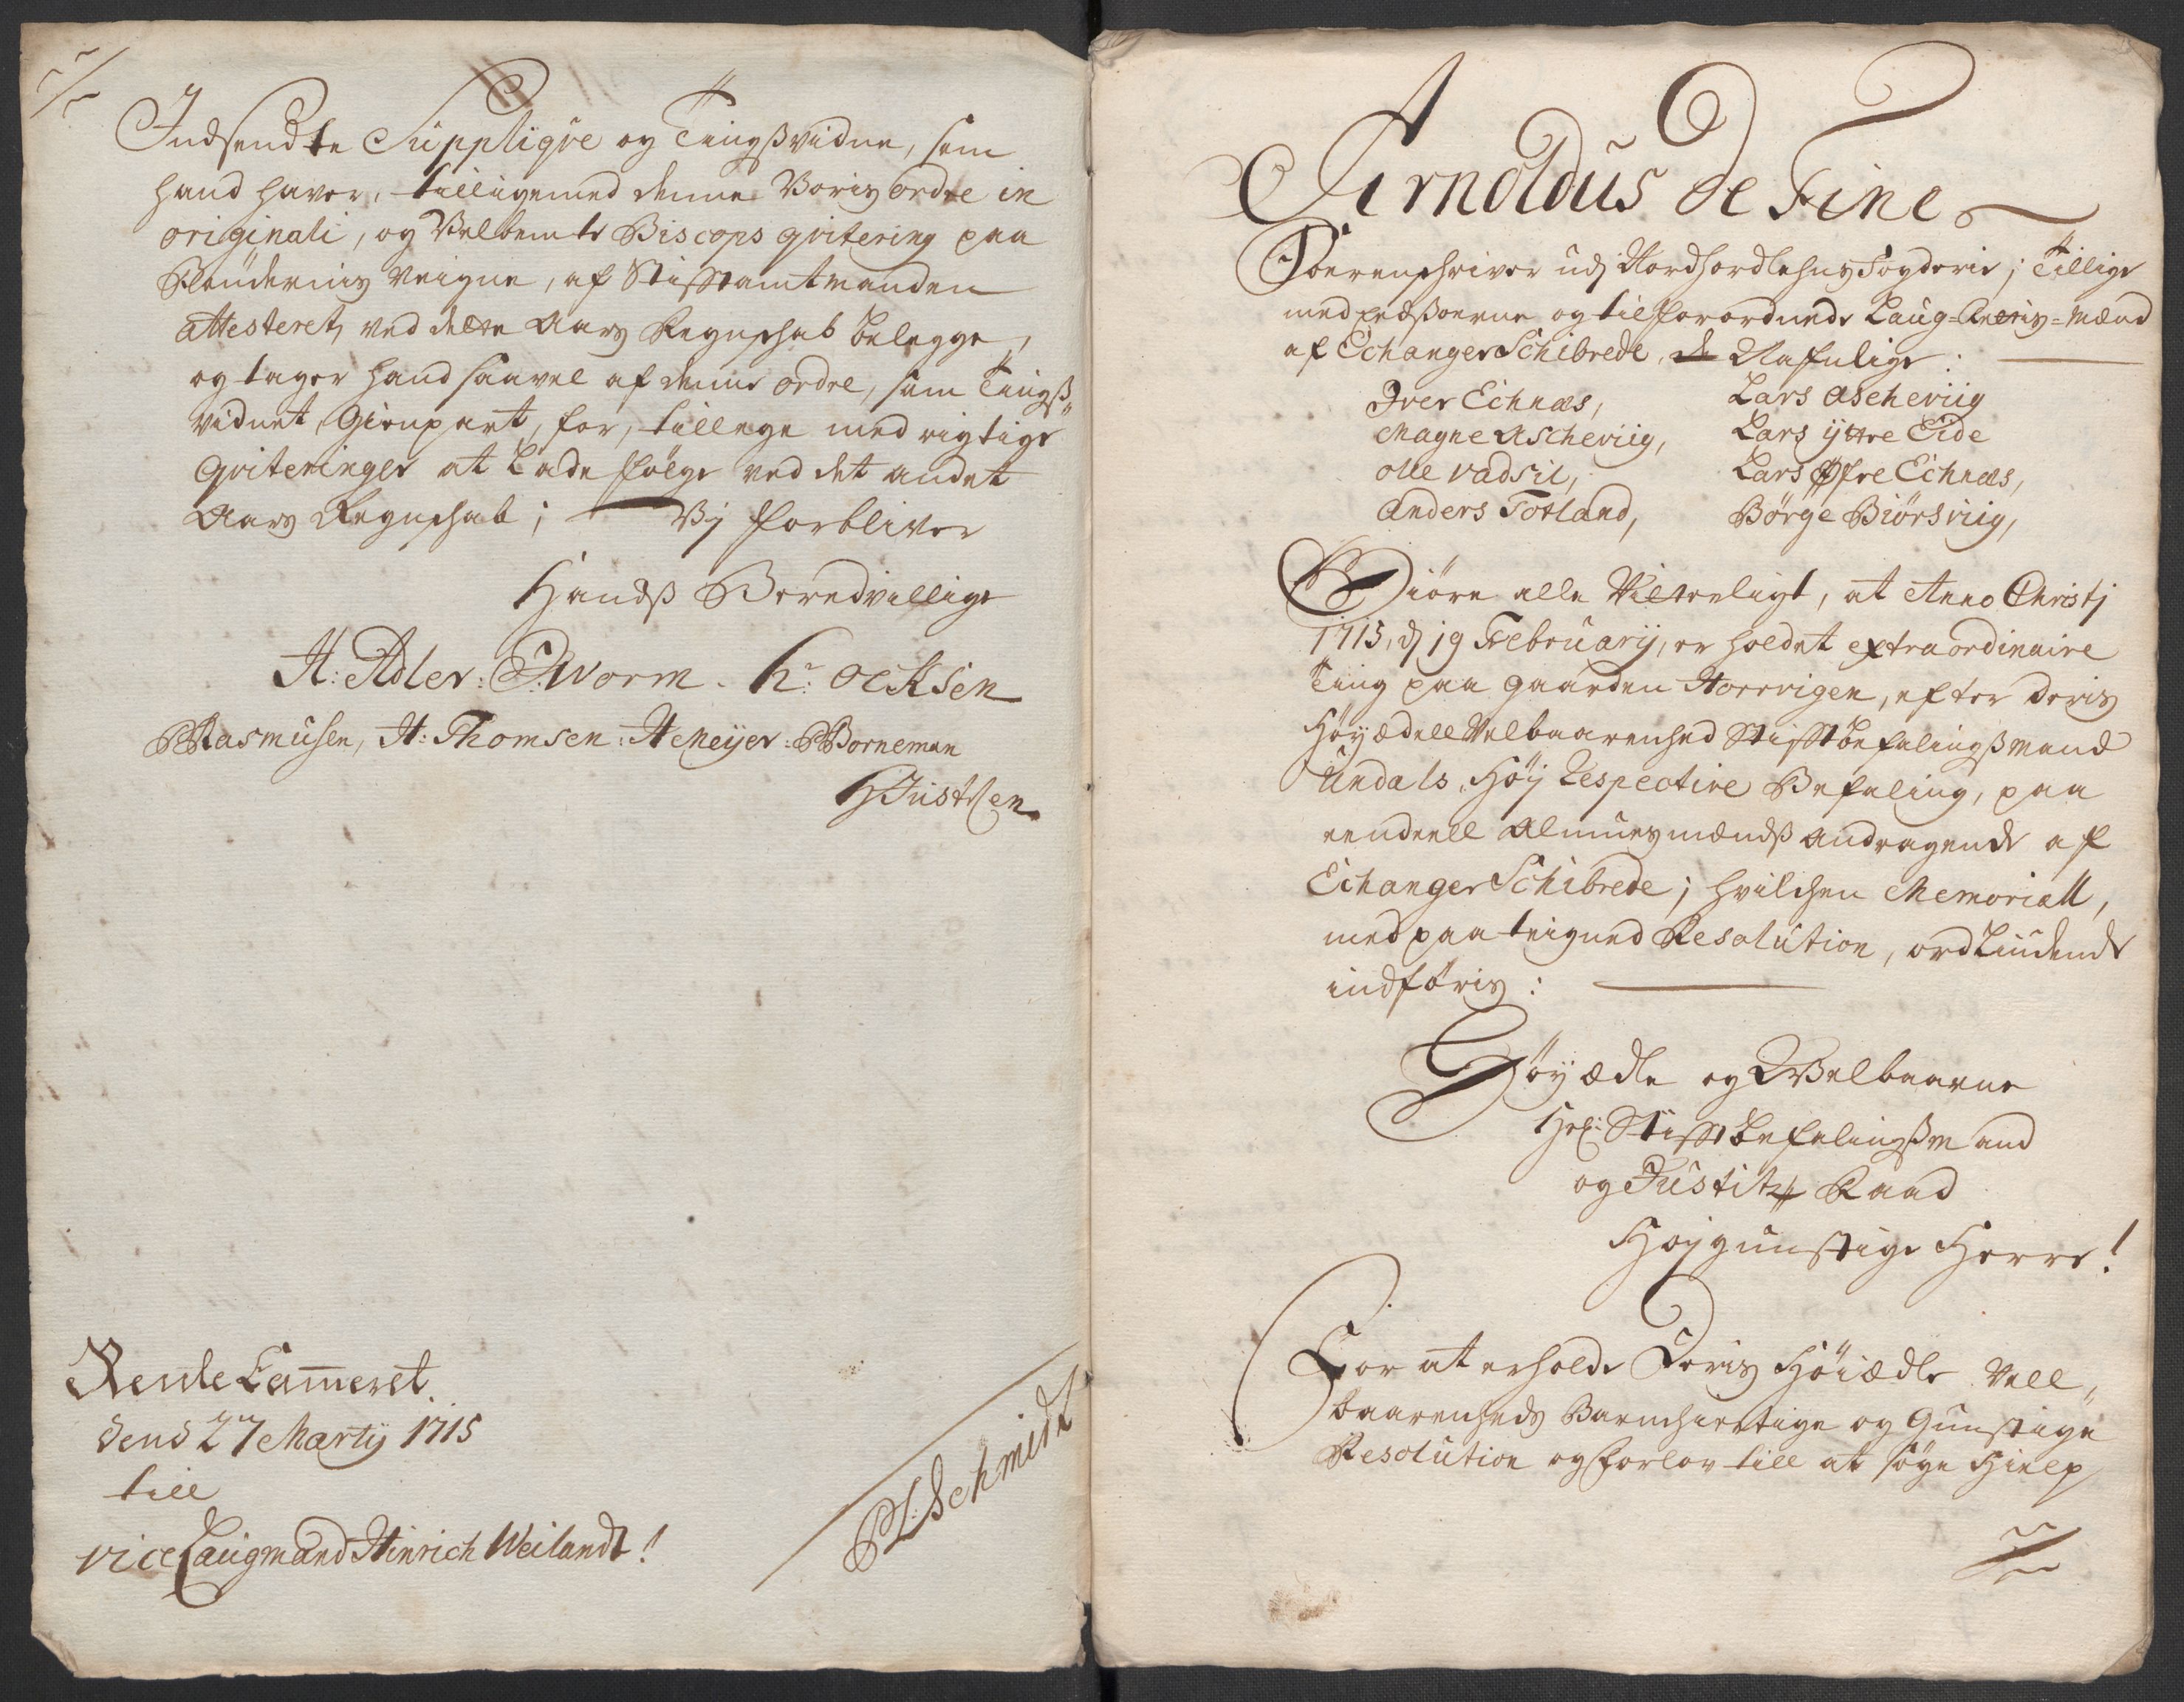 Indsendte Suppliqve og Tingsvidne, som
hand haver, tilligemed denne Voris ordre in
originali, og Velbemte Biscops qvitering paa
Pløndernis veigne, af Stifftamtmanden
attesteret, ved dette Aars Regnschab belegge,
og tager hand saavel af denne ordre, som Tings„
vidnet Gienpart, for, tillige med rigtige
Qviteringer at Lade følge ved det andet
Aars Regnschab; Vj forbliver
Handß Beredvillige
A: Adler: CWorm. Ocksen
Rasmusen, H: Thomsen: HMeÿer: Borneman
HJustsen
Rente Cam̄eret.
dend 27 Martij 1715
till
vice Laugmand Hinrich Weilandt!
Schmidt
Arnoldus de Fine
Soerenschriver udj Nordhordlehns Fogderie; Tillige
med Eedsorne og tilforordnede Laug-Rettis-Mænd
af Echanger Schibrede, Nafnlige:
Iver Echnæs, Lars Ascheviig
Magne Ascheviig, Lars ÿttre Eide
Olle Vadsil, Lars Øfre Echnæs,
Anders Totland, Børge Biørsviig,
Giøre alle Vitterligt, at Anno Christj
1715, d 19 Februarij, er holdet extraordinaire
Ting paa gaarden Horvigen, efter deris
Høÿædell Velbaarenhed Stifftbefalingßmand
Undals, Høÿ Respective Befaling, paa
eendeell Almuesmændß andragende af
Echanger Schibrede; hvilchen Memoriall,
med paateigned Resolution, ordliudende
indføris:
Høÿædle og Velbaarne
Hr: Stifftbefalingßmand
og Justitz Raad
Høÿgunstige Herre!
For at erholde Deris Høiædle Vell„
baarenheds Barmhiertige og Gunstige
Resolution og forlov till at søge Hielp